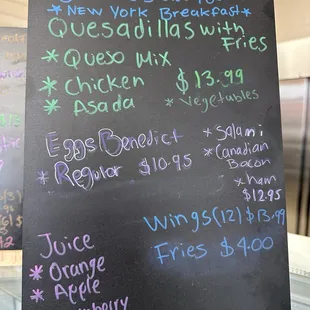 *New York Breakfast*
Quesadillas with
Fries
* Queso Mix
* Chicken $13.99
* Asada * Vegetables
Eggs Benedict
* Regular $10.95
* Salami
* Canadian
Bacon
* ham
$12.95
Wings (12) $13.99
Fries $4.00
Juice
* Orange
* Apple